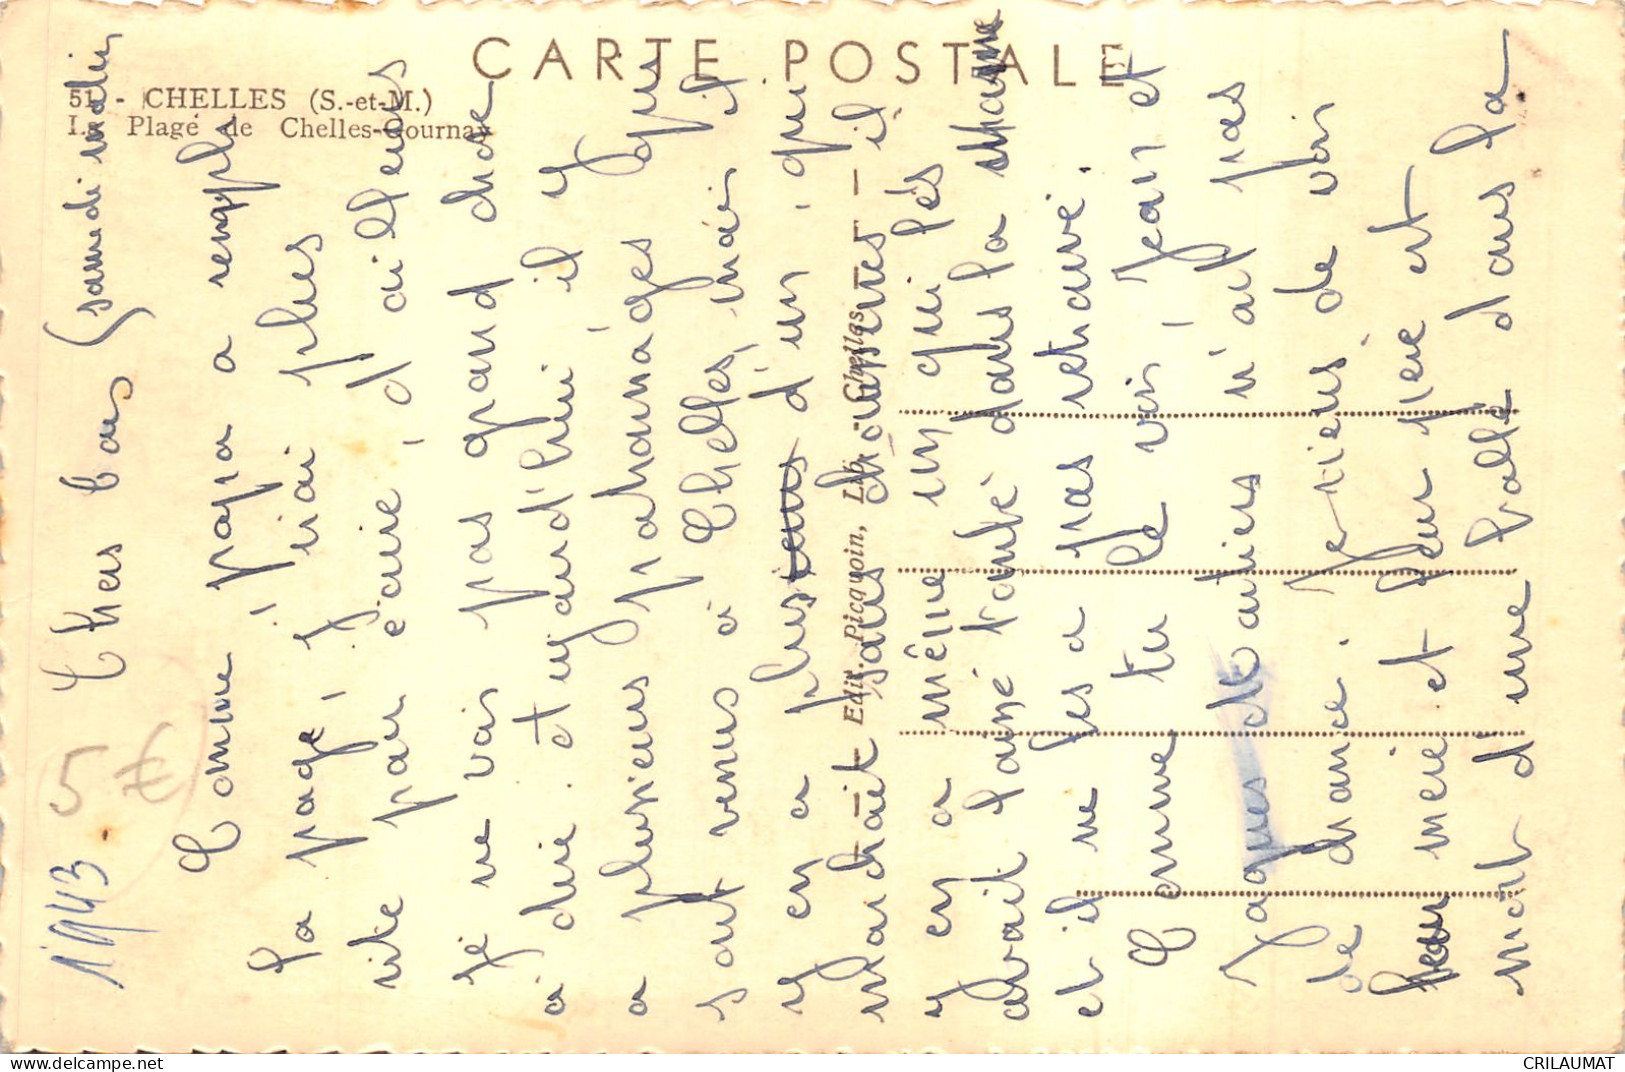 CARTE POSTALE
51 - CHELLES (S.-et-M.)
Plage de Chelles-Gournay
Edit. Picquoin, Lib. - Chelles
1943
5 €
Samedi matin
Comme papa a rempli
la page, j'irai plus
vite pour écrire, d'ailleurs
je ne vois pas grand chose
à dire. et aujourd'hui il y
a plusieurs patronages qui
sont venus à Chelles, mais il
y en a plus d'un, qui
marchait sans chaussures il
y en a même un qui les
avait laissé tombé dans la marne
et il ne les a pas retrouvé.
Comme tu le vois, Jean et
Jaques et autres n'ait pas
de chance. Je viens de voir
mère et leur père est
mort d'une balle dans la
delcampe.net
CRILAUMAT